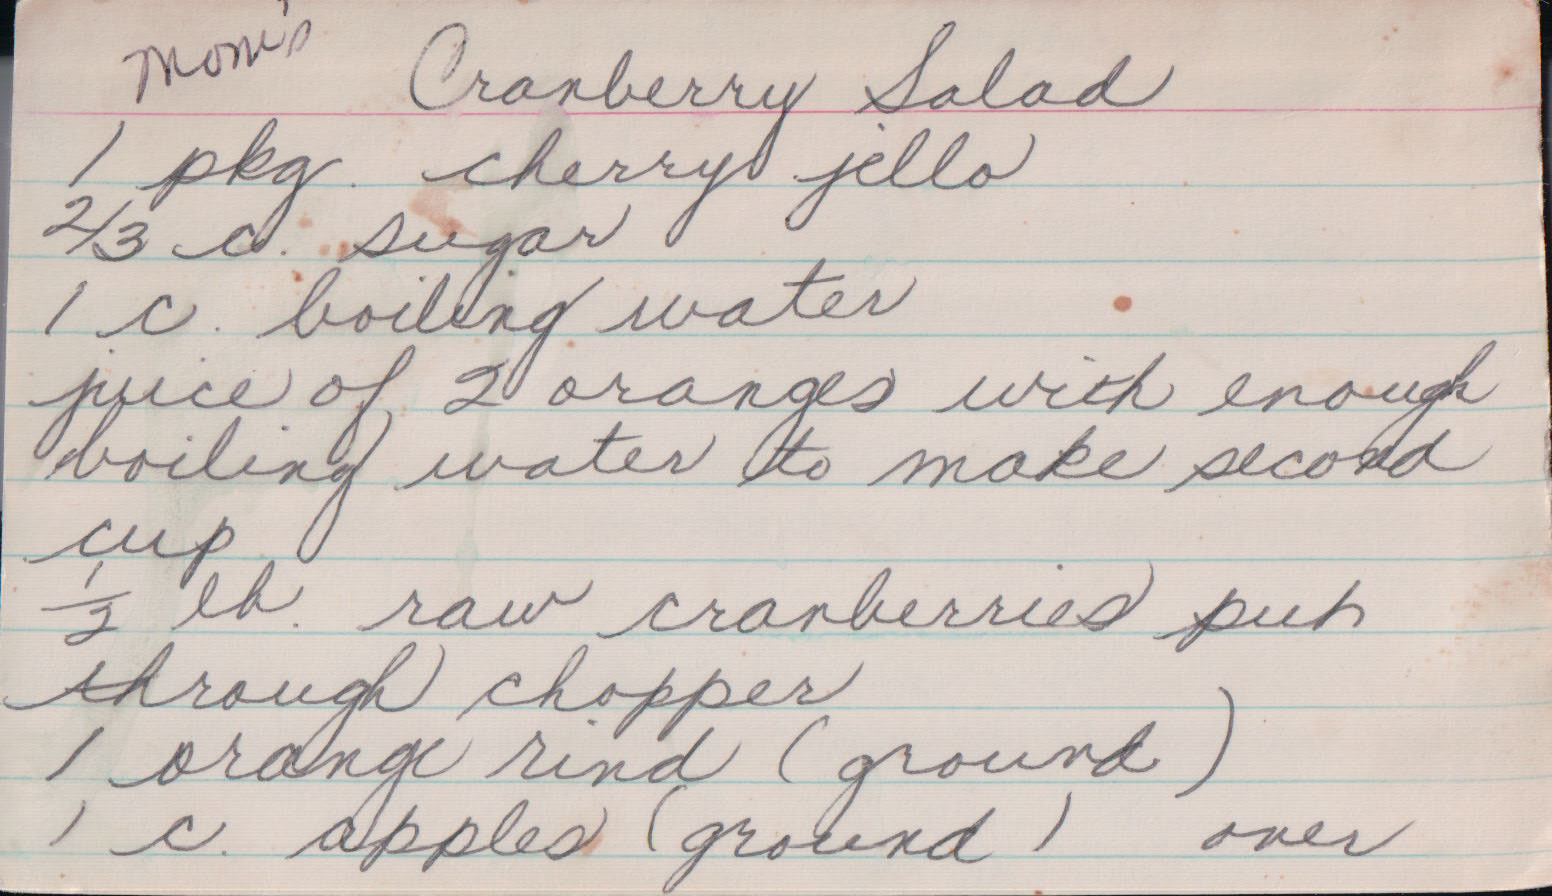 Mom's Cranberry Salad
1 pkg. cherry jello
2/3 c. sugar
1 c. boiling water
juice of 2 oranges with enough
boiling water to make second
cup
1/2 lb. raw cranberries put
through chopper
1 orange rind (ground)
1 c. apples (ground) over